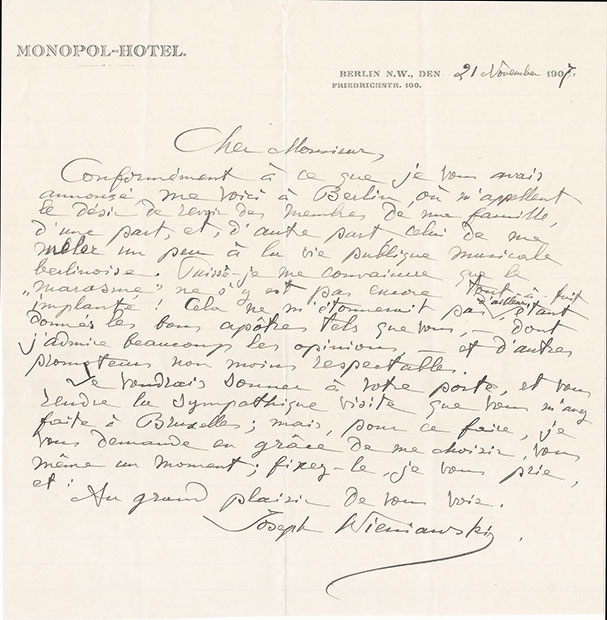 MONOPOL-HOTEL.
BERLIN N.W., DEN 21 November 1907.
FRIEDRICHSTR. 100.
Cher Monsieur,
Conformément à ce que je vous avais
annoncé, me voici à Berlin, où m'appellent
le désir de revoir des membres de ma famille,
d'une part, et, d'autre part celui de me
mêler un peu à la vie publique musicale
berlinoise. Puissé-je me convaincre que le
"marasme" ne s'y est pas encore tout à fait
implanté! Cela ne m'étonnerait pas d'ailleurs, étant
donnés les bons apôtres tels que vous, – dont
j'admire beaucoup les opinions – et d'autres
promoteurs non moins respectables.
Je voudrais sonner à votre porte, et vous
rendre la sympathique visite que vous m'avez
faite à Bruxelles; mais, pour ce faire, je
vous demande en grâce de me choisir vous
même un moment; fixez-le, je vous prie,
et:
Au grand plaisir de vous voir.
Joseph Wieniawski